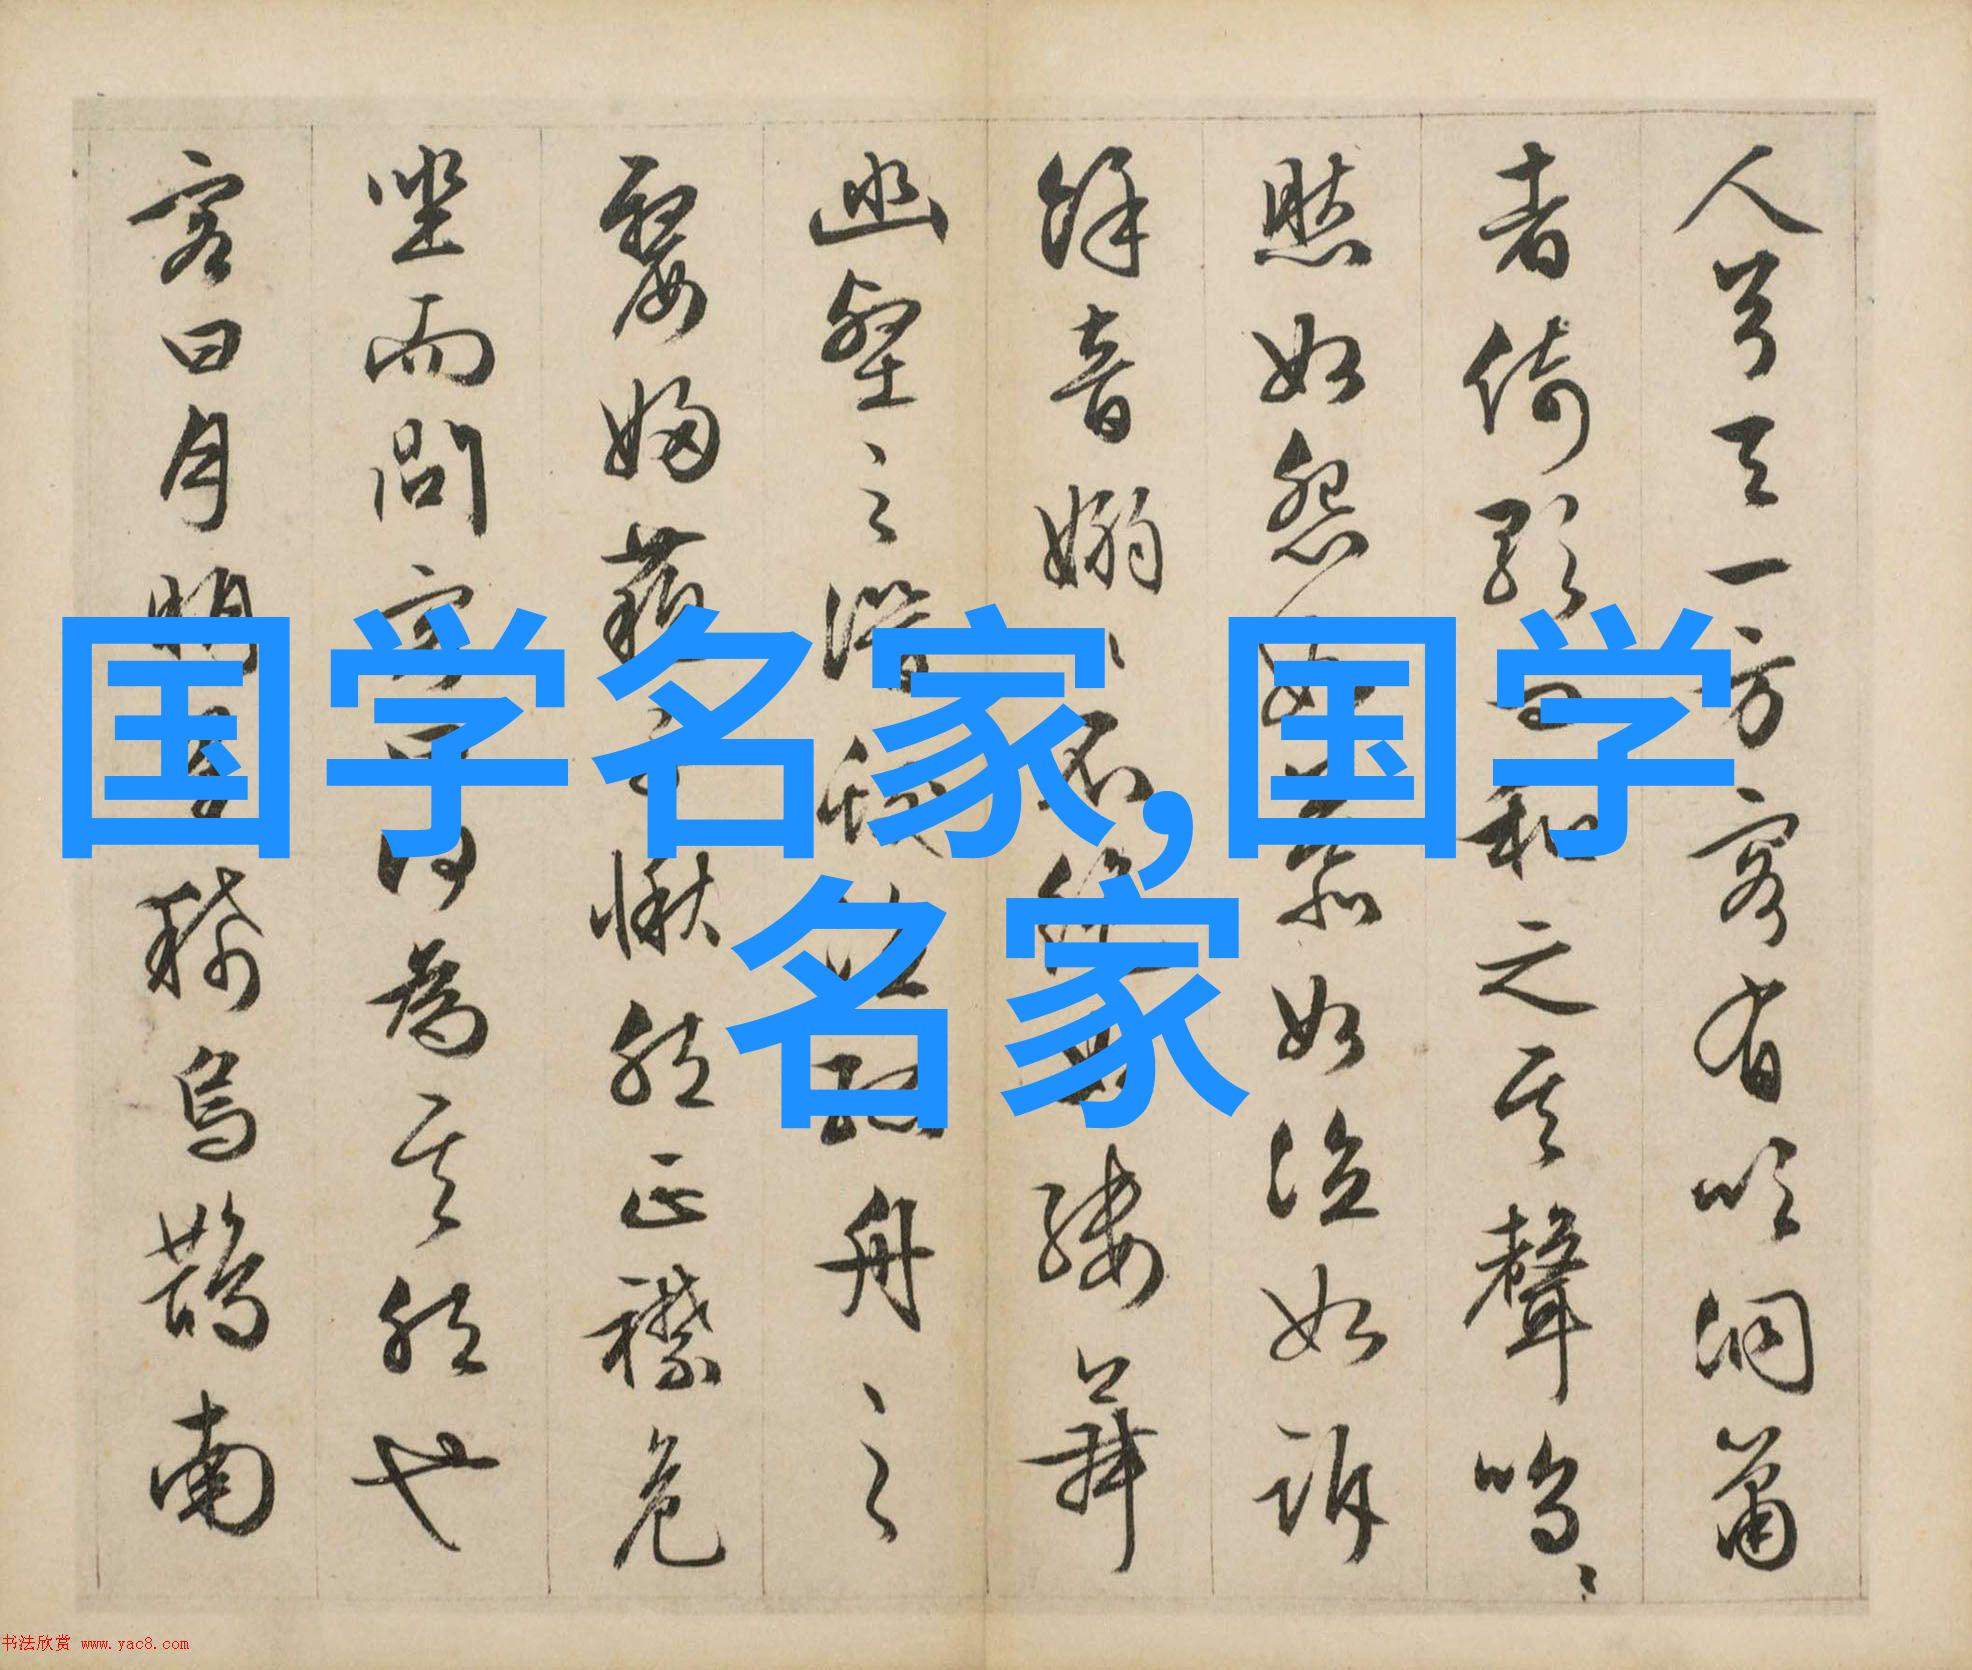 人兮天一方客有吹洞萧
者倚歌而和之其聲嗚〻
然如怨如慕如泣如訴
餘音嫋〻不絶如縷舞
幽壑之潛蛟泣孤舟之〻
嫠婦蘇子愀然正襟危
坐而問客曰何為其然也
客曰月明星稀烏鵲南
国学名家,国学
名家
书法欣赏 www.yac8.com